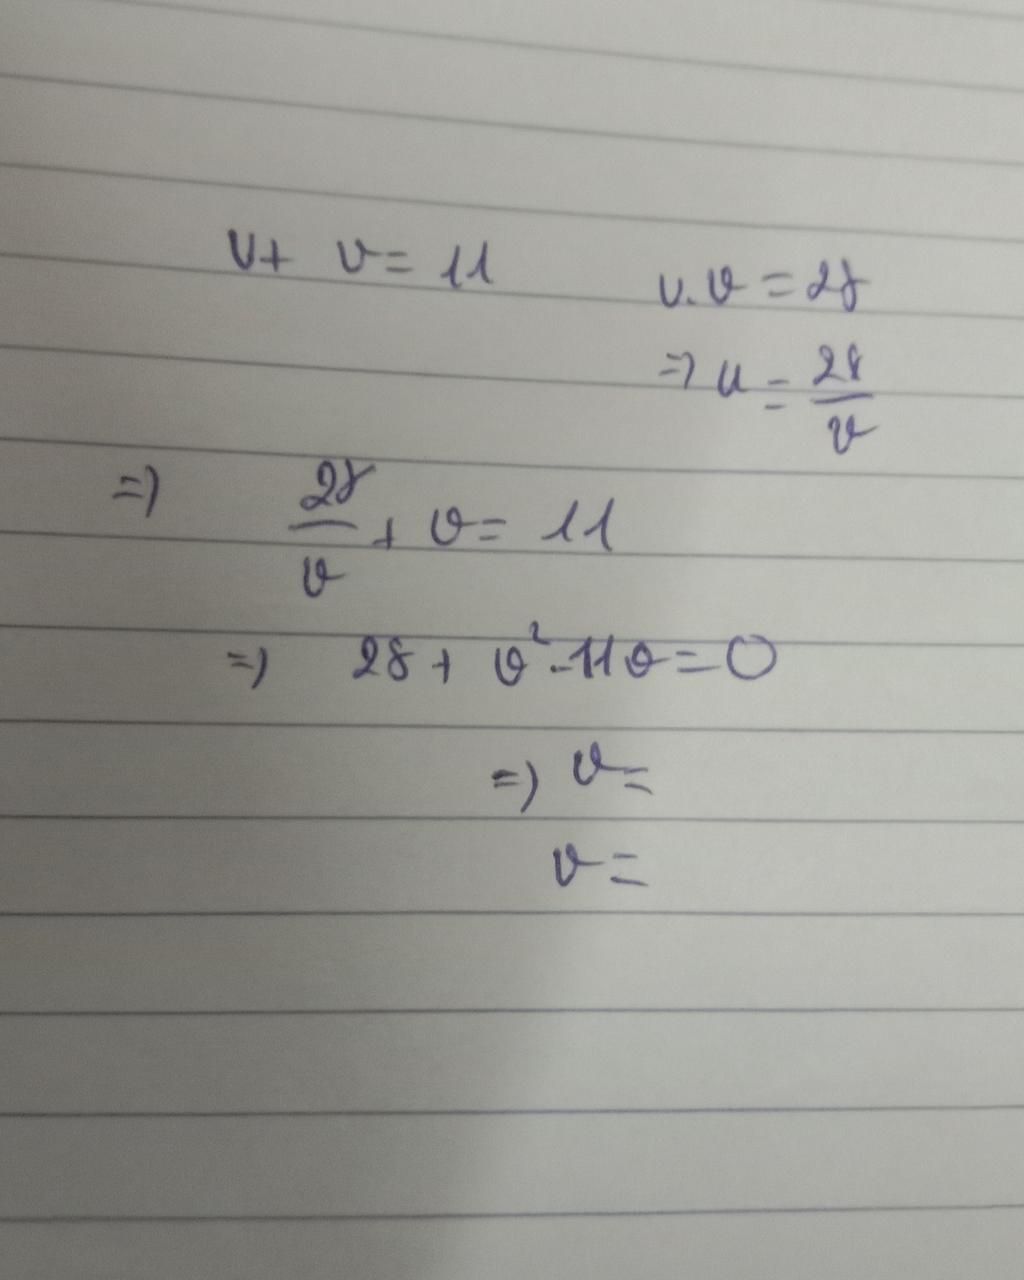 u + v = 11
u . v = 28
=> u = 28/v
=> 28/v + v = 11
=> 28 + v² - 11v = 0
=> v =
v =